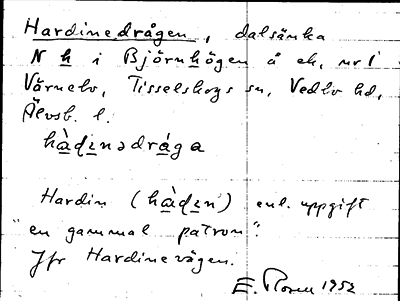 Hardinedrågen, dalsänka
N h i Björnhögen å ek. nr 1
Värnebo, Tisselskogs sn, Vedbo hd,
Älvsb. l.
hàdinədråga
Hardin (hàdin) enl. uppgift
"en gammal patron".
Jfr Hardinevägen.
E. Rosen 1952